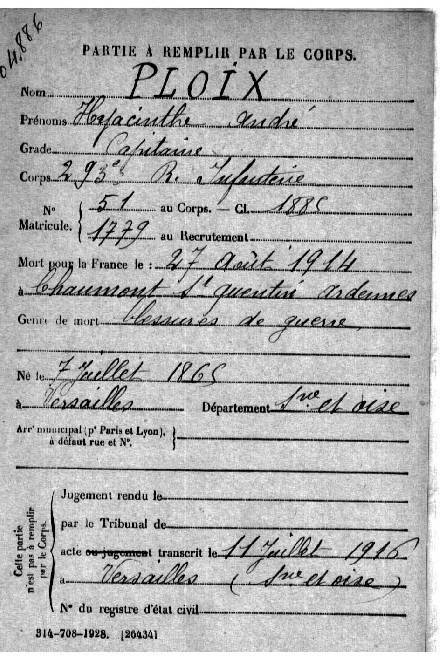 04.886
PARTIE À REMPLIR PAR LE CORPS.
Nom PLOIX
Prénoms Hyacinthe André
Grade Capitaine
Corps 293e R. Infanterie
N° Matricule. { 51 au Corps. — Cl. 1885
1779 au Recrutement
Mort pour la France le : 27 Août 1914
à Chaumont St quentin ardennes
Genre de mort blessures de guerre
Né le 7 Juillet 1865
à Versailles Département Sne et oise
Arrt municipal (pr Paris et Lyon), à défaut rue et N°. }
Cette partie n'est pas à remplir par le Corps.
Jugement rendu le
par le Tribunal de
acte ou jugement transcrit le 11 Juillet 1916
à Versailles (Sne et oise)
N° du registre d'état civil
314-708-1928. [26434]